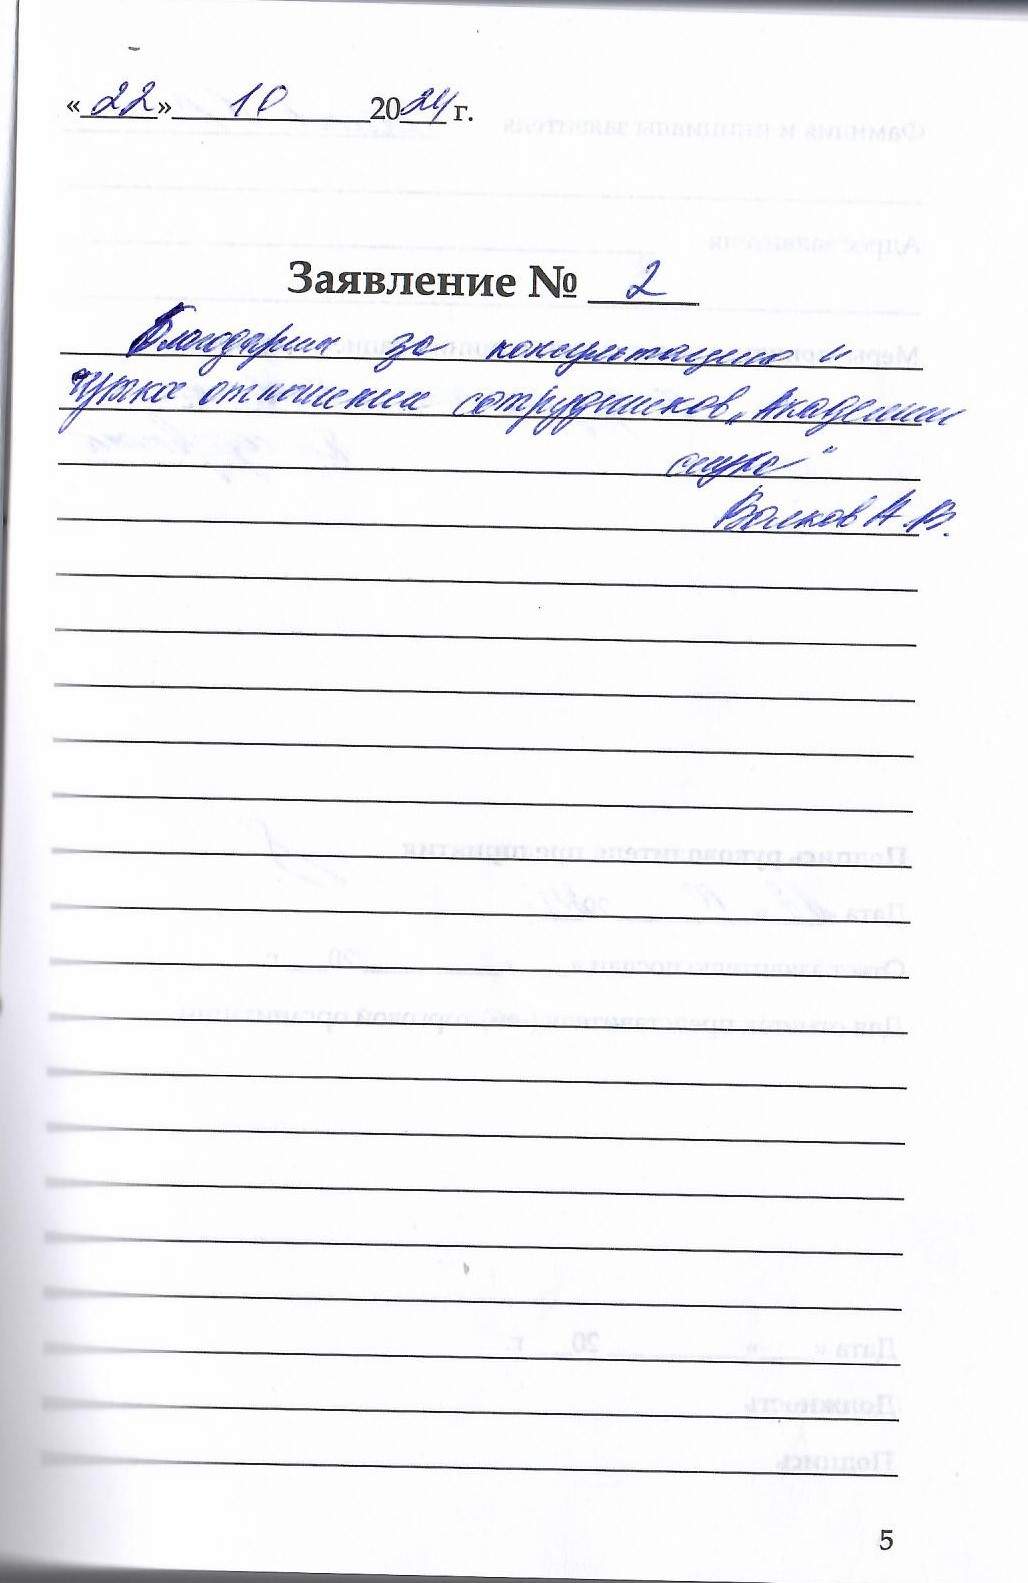 «22» 10 2024 г.
Заявление № 2
Благодарим за консультацию и
чуткое отношение сотрудников „Академии
слуха"
Волков А.В.
5